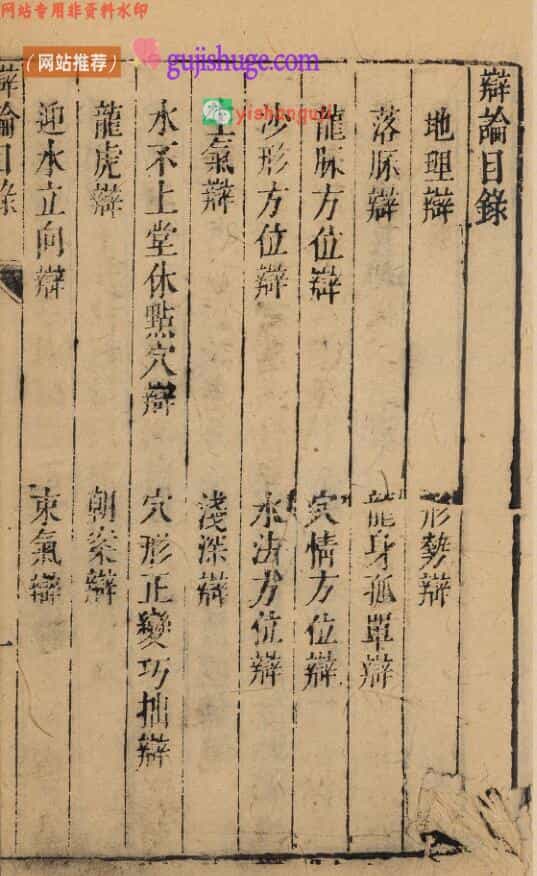 网站专用非资料水印
（网站推荐）
gujishuge.com
yishunguji
辯論目錄
地理辯
形勢辯
落脉辯
龍身孤單辯
龍脉方位辯
穴情方位辯
沙形方位辯
水法方位辯
氣辯
淺深辯
水不上堂休點穴辯
穴形正變巧拙辯
龍虎辯
朝案辯
迎水立向辯
束氣辯
辯論目錄
一